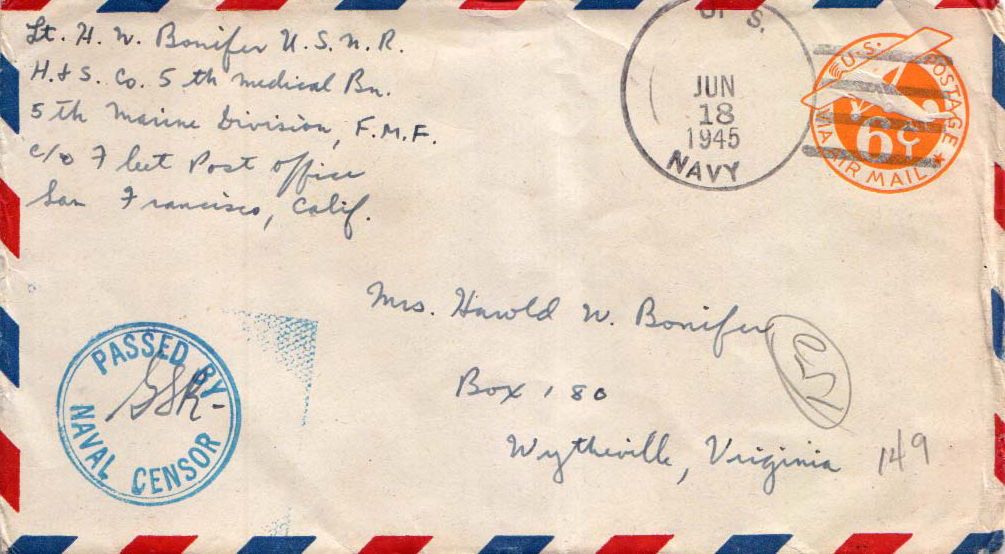 Lt. H. W. Bonifer U.S.N.R.
H. & S. Co. 5th Medical Bn.
5th Marine Division, F.M.F.
c/o Fleet Post Office
San Francisco, Calif.
U. S.
JUN
18
1945
NAVY
U.S. POSTAGE
6¢
VIA AIR MAIL
Mrs. Harold W. Bonifer
Box 180
Wytheville, Virginia
149
PASSED BY
NAVAL CENSOR